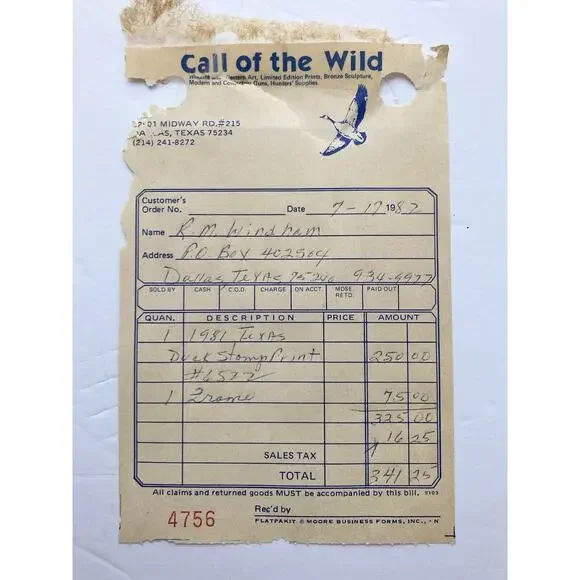 Call of the Wild
Western Art, Limited Edition Prints, Bronze Sculpture,
Modern and Guns, Hunters' Supplies
01 MIDWAY RD. #215
DALLAS, TEXAS 75234
(214) 241-8272
Customer's
Order No. Date 7-17 1982
Name R.M. Windham
Address P.O. Box 402504
Dallas Texas 75240 934-9977
SOLD BY CASH C.O.D. CHARGE ON ACCT. MDSE RETD. PAID OUT
QUAN. DESCRIPTION PRICE AMOUNT
1 1981 Texas
Duck Stamp Print 250 00
#6522
1 Frame 75 00
325 00
16 25
SALES TAX
TOTAL 341 25
All claims and returned goods MUST be accompanied by this bill.
4756 Rec'd by
FLATPAKIT © MOORE BUSINESS FORMS, INC., - N